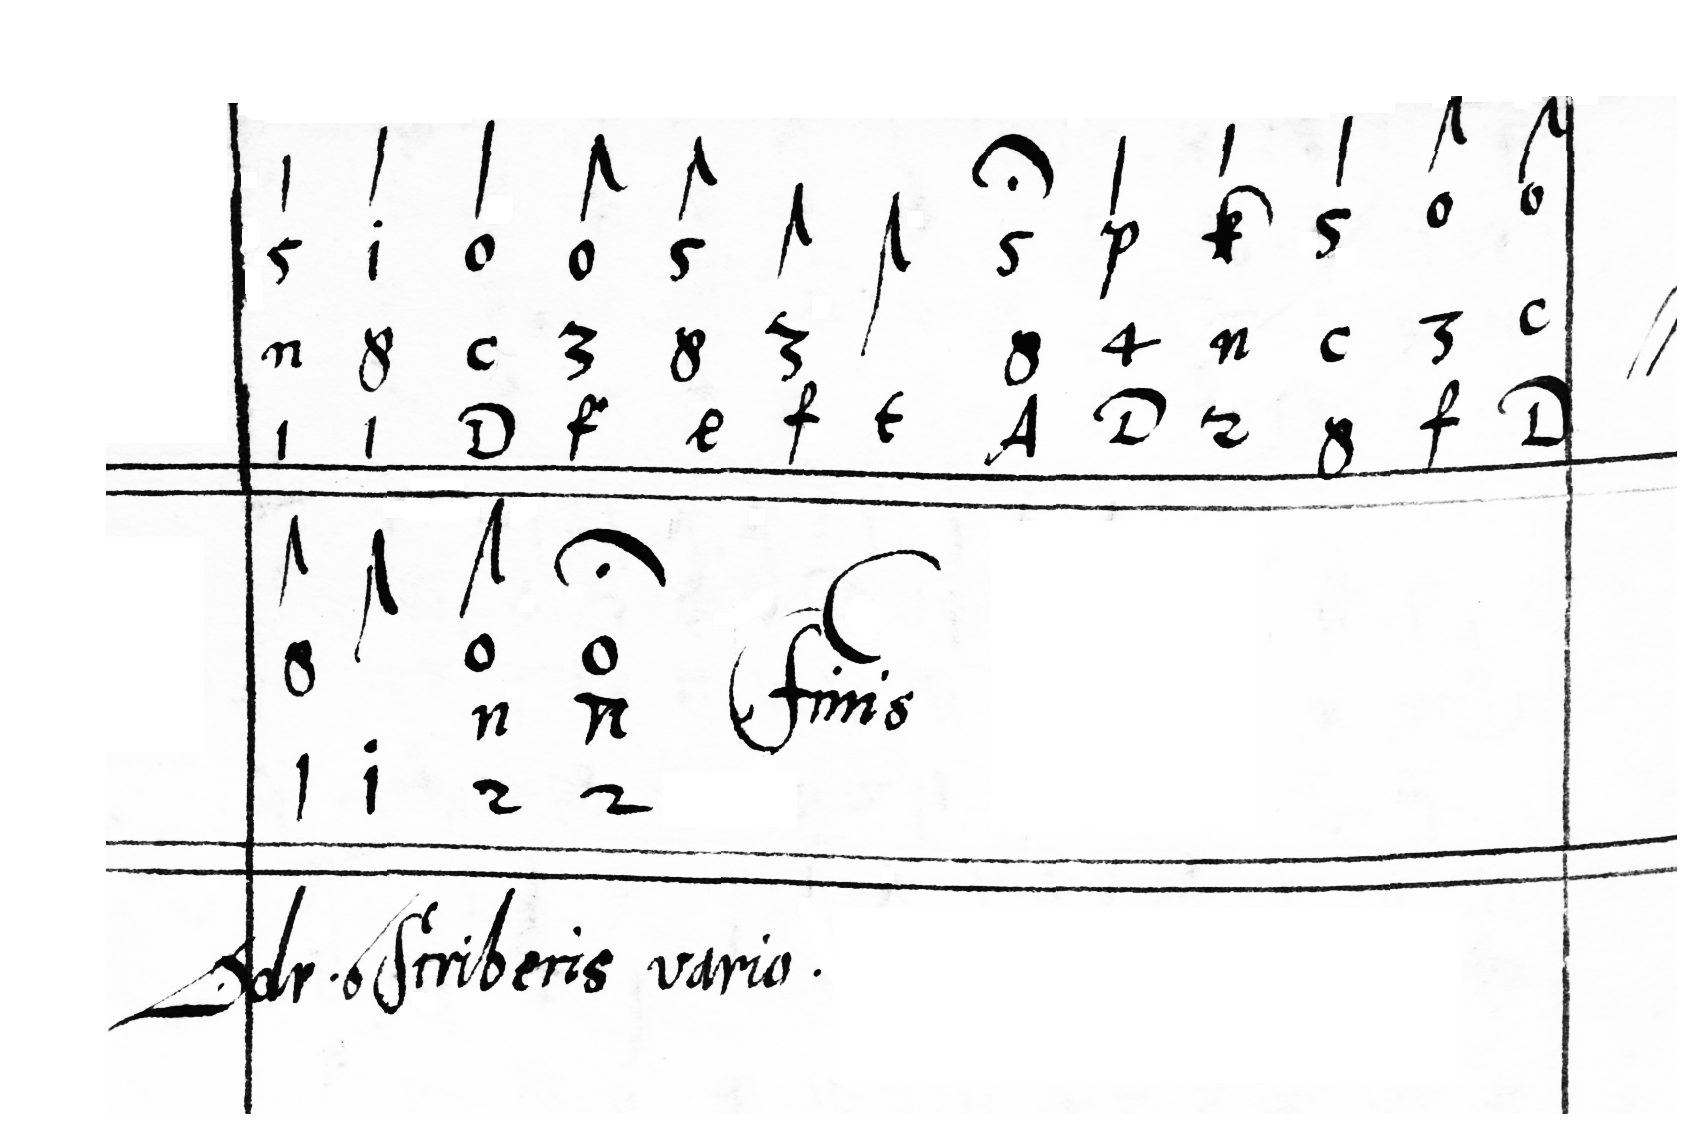 5 i o o 5 5 p 5 o o
n 8 c 3 8 3 8 4 n c 3 c
1 1 D f e f t A D 2 8 f D
8 o o
n n
1 i 2 2
finis
Scriberis vario .